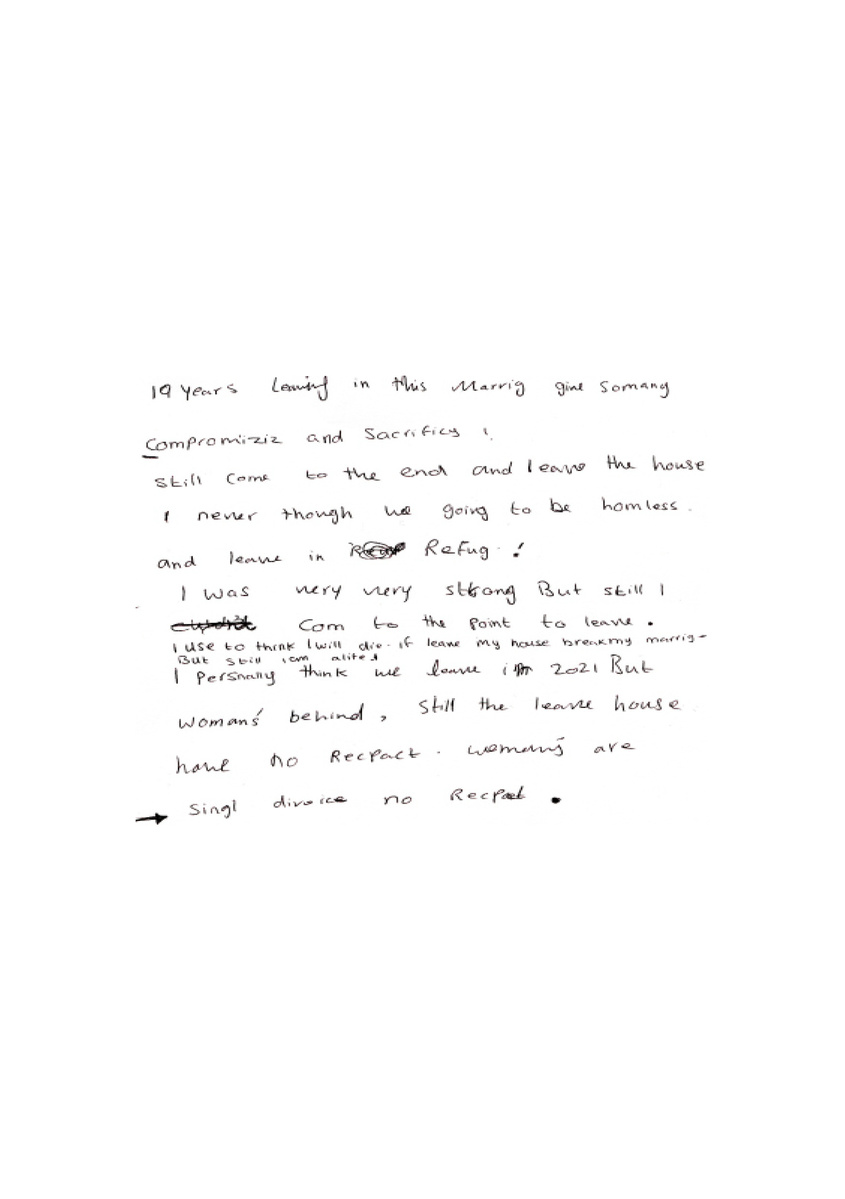 19 Years Leaving in this Marrig give Somany
Compromiziz and Sacrificy !
still come to the end and leave the house
I never though we going to be homless.
and leave in Refug. !
I was very very strong But still I
Com to the Point to leave.
I use to think I will die. if leave my house break my marrig-
But still iam alive
I Persnally think we leave in 2021 But
womans' behind, still the leave house
have no Recpact. womens are
→ Singl divoice no Recpect.